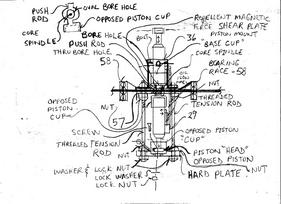 PUSH ROD
OVAL BORE HOLE
OPPOSED PISTON CUP
CORE SPINDLE
REPELLENT MAGNETIC
FACE SHEAR PLATE
PISTON MOUNT
BORE HOLE
PUSH ROD
THRU BORE HOLE
58
BOLT
36
"BASE CUP"
CORE SPINDLE
BEARING
RACE - 58
OPPOSED
PISTON
CUP
NUT
57
SCREW
THREADED
TENSION ROD
29
THREADED TENSION
ROD
NUT
OPPOSED PISTON
"CUP"
PISTON "HEAD"
OPPOSED PISTON
WASHER & LOCK NUT
LOCK WASHER
LOCK NUT
HARD PLATE
NUT